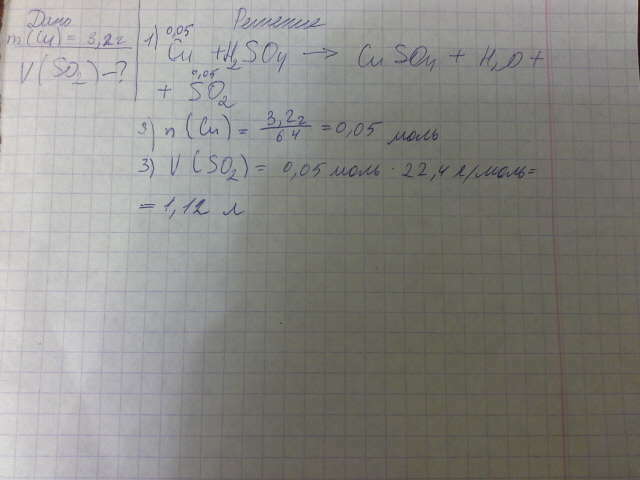 Дано
m(Cu) = 3,2г
V(SO₂) – ?
Решение
0,05
1) Cu + H₂SO₄ → CuSO₄ + H₂O +
0,05
+ SO₂
2) n(Cu) = 3,2г/64 = 0,05 моль
3) V(SO₂) = 0,05 моль · 22,4 л/моль=
= 1,12 л